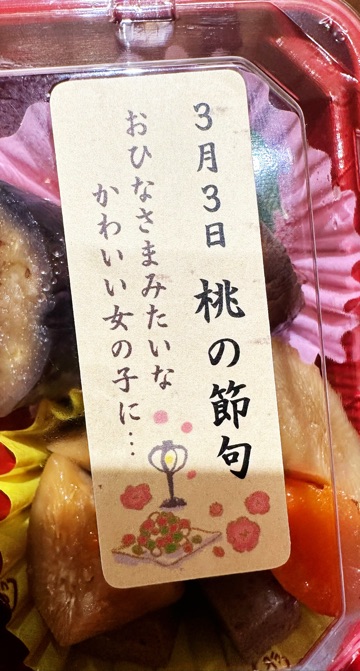 3月3日 桃の節句
おひなさまみたいな
かわいい女の子に…